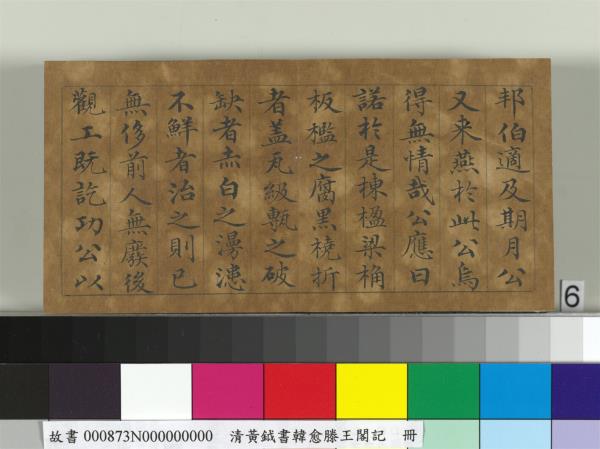 邦伯適及期月公
又来燕於此公烏
得無情哉公應曰
諾於是棟楹梁桷
板檻之腐黑橈折
者盖瓦級甎之破
缺者赤白之漫漶
不鮮者治之則已
無侈前人無廢後
觀工既訖功公以
6
故書 000873N000000000 清黃鉞書韓愈滕王閣記 冊